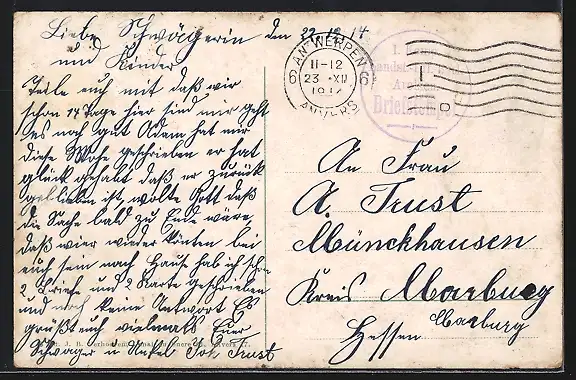 Liebe Schwägerin den 22.12.14
und Kinder
Teile euch mit daß wir
schon 14 Tage hier sind mir geht
es noch gut Adam hat mir
diese Wohe geschrieben er hat
glück gehabt daß er zurück
geblieben ist, wolte Gott daß
die Sache bald zu Ende wäre,
daß wier wieder könten bei
euch sein nach Hause hab ich schon
2 Briefe und 2 Karte geschrieben
und noch keine Antwort Es
grüßt euch vielmals Euer
Schwager u Onkel Joh. Trust
ANTWERPEN
6 11-12 6
23 XII
1914
ANVERS
Landst.
Briefstempel
An Frau
A. Trust
Münckhausen
Kreis Marburg
Hessen Marburg